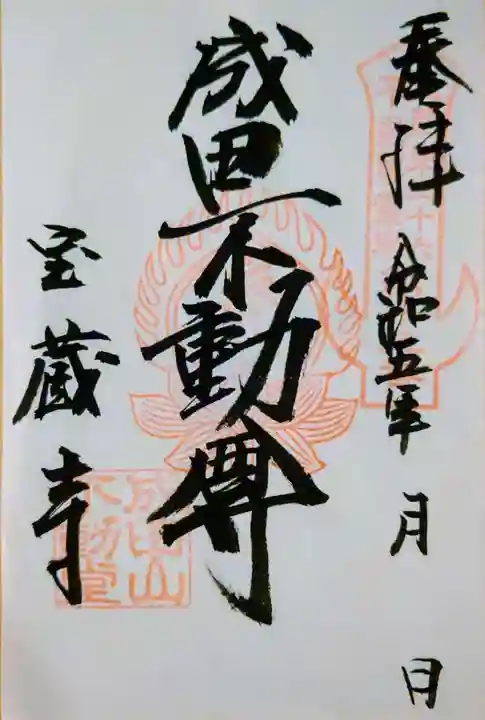 奉拝 令和五年 月 日
成田不動尊
宝蔵寺
成田山不動堂